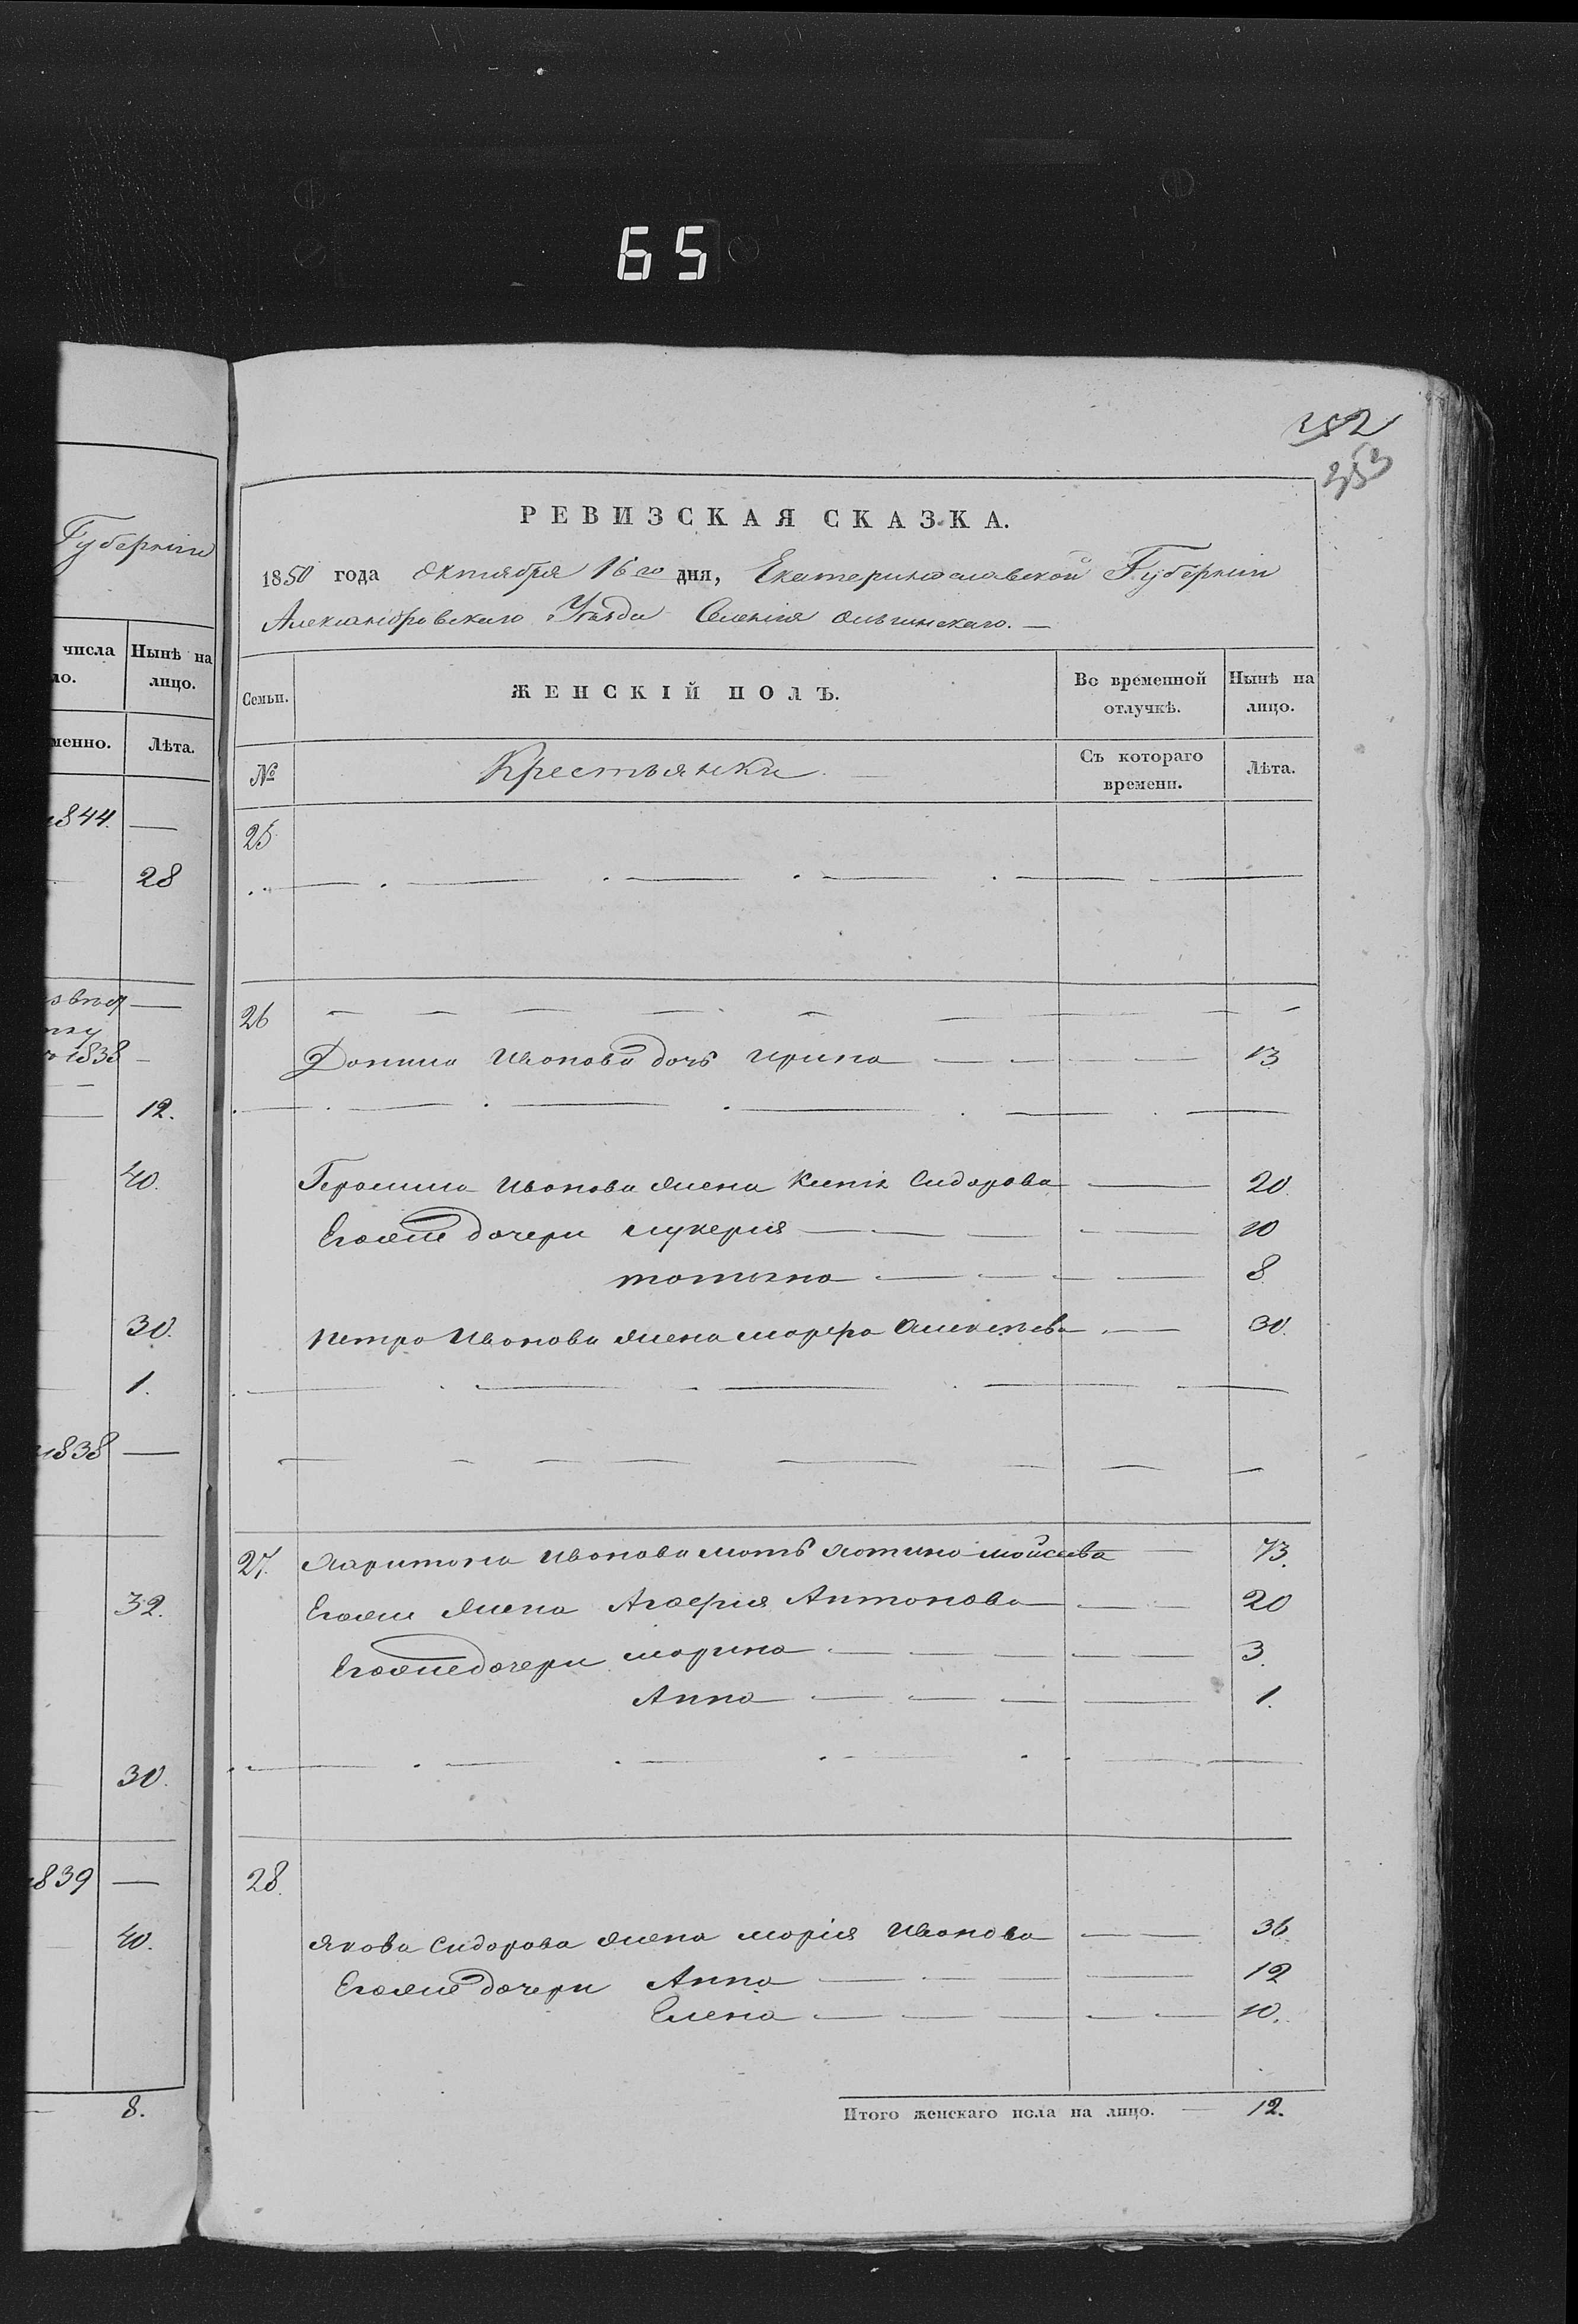 65
352
353
Губерніи
числа
ло.
Нынѣ на
лицо.
менно.
Лѣта.
1844. —
28
1838
12.
40.
30.
1.
1838 —
32.
30.
1839 —
40.
8.
РЕВИЗСКАЯ СКАЗКА.
1850 года октября 16го дня, Екатеринославской Губерніи
Александровскаго Уѣзда Селенія Ольгинскаго. —
Семьи.
ЖЕНСКІЙ ПОЛЪ.
Во временной
отлучкѣ.
Нынѣ на
лицо.
№
Крестьянки
Съ котораго
времени.
Лѣта.
25
26
Данила Иванова дочь Ирина 13
Герасима Иванова жена Ксенія Сидорова 20.
Егоже дочери Лукерія 10
Татьяна 8
Петра Иванова жена Марфа Алексѣева 30.
27. Харитона Иванова мать Хотина Мойсеева 73.
Егоже жена Агафія Антонова 20
Егоже дочери Марина 3.
Анна 1.
28.
Якова Сидорова жена Марія Иванова 36
Егоже дочери Анна 12
Елена 10.
Итого женскаго пола на лицо. — 12.